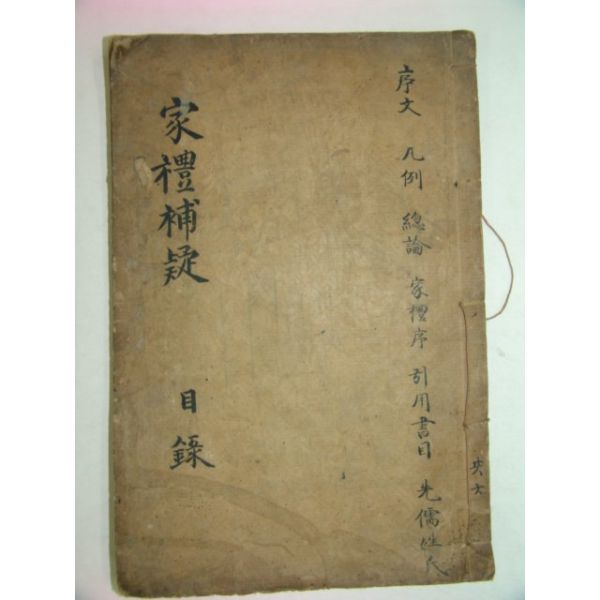 序文 凡例 總論 家禮序 引用書目 先儒姓氏
家禮補疑 目錄